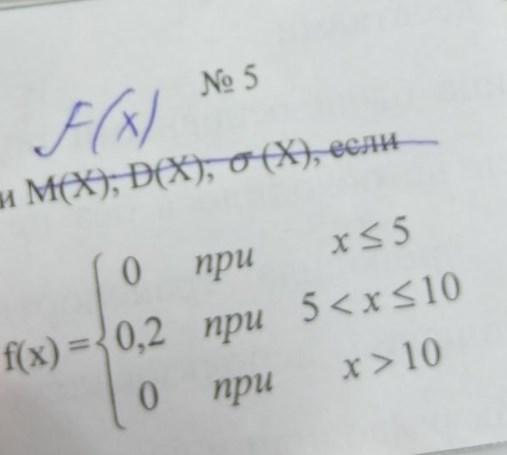 № 5
F(x)
и M(X); D(X); σ (X), если
f(x) = { 0 при x ≤ 5
0,2 при 5 < x ≤ 10
0 при x > 10